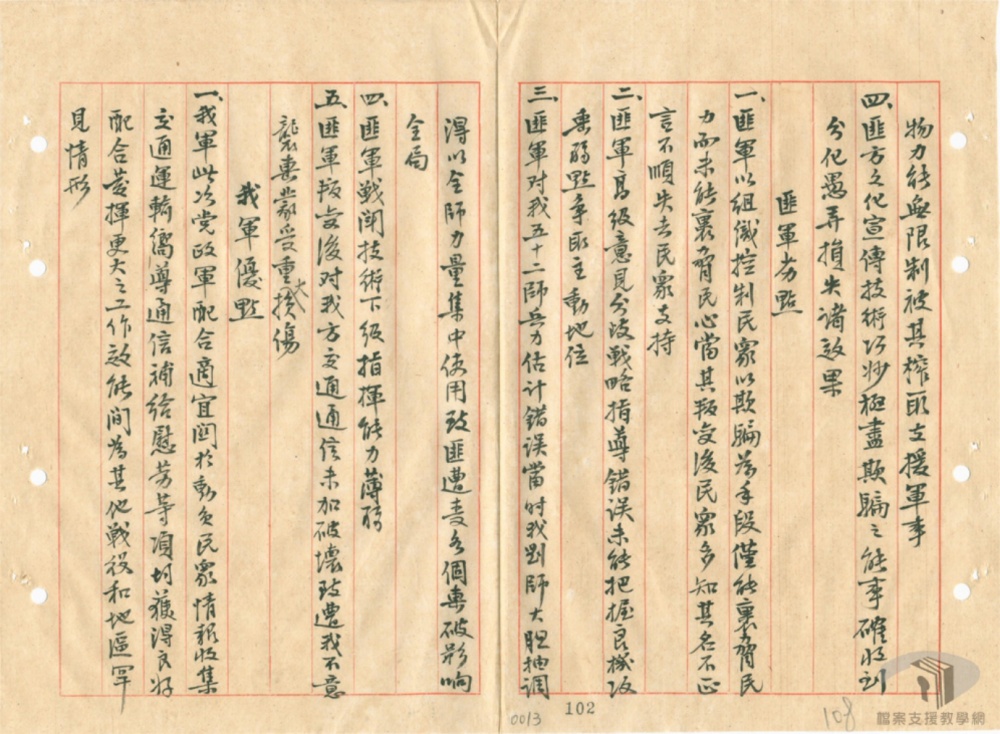 物力能無限制被其榨取支援軍事
四、匪方文化宣傳技術巧妙極盡欺騙之能事確收到
分化愚弄損失諸效果
匪軍劣點
一、匪軍以組織控制民眾以欺騙為手段僅能裹脅民
力而未能裹脅民心當其叛變後民眾多知其名不正
言不順失去民眾支持
二、匪軍高級意見分歧戰略指導錯誤未能把握良機攻
弱點爭取主動地位
三、匪軍对我五十二師兵力估計錯誤當时我劉師大胆抽調
得以全師力量集中使用致匪遭各個破影响
全局
四、匪軍戰鬥技術下級指揮能力薄弱
五、匪軍叛变後对我方交通通信未加破壞致遭我不意
襲蒙受重大損傷
我軍優點
一、我軍此次党政軍配合適宜関於動員民眾情報收集
交通運輸嚮導通信補給慰劳等項均獲得良好
配合發揮更大之工作效能間為其他戰役和地區罕
見情形
0013
102
108
檔案支援教學網